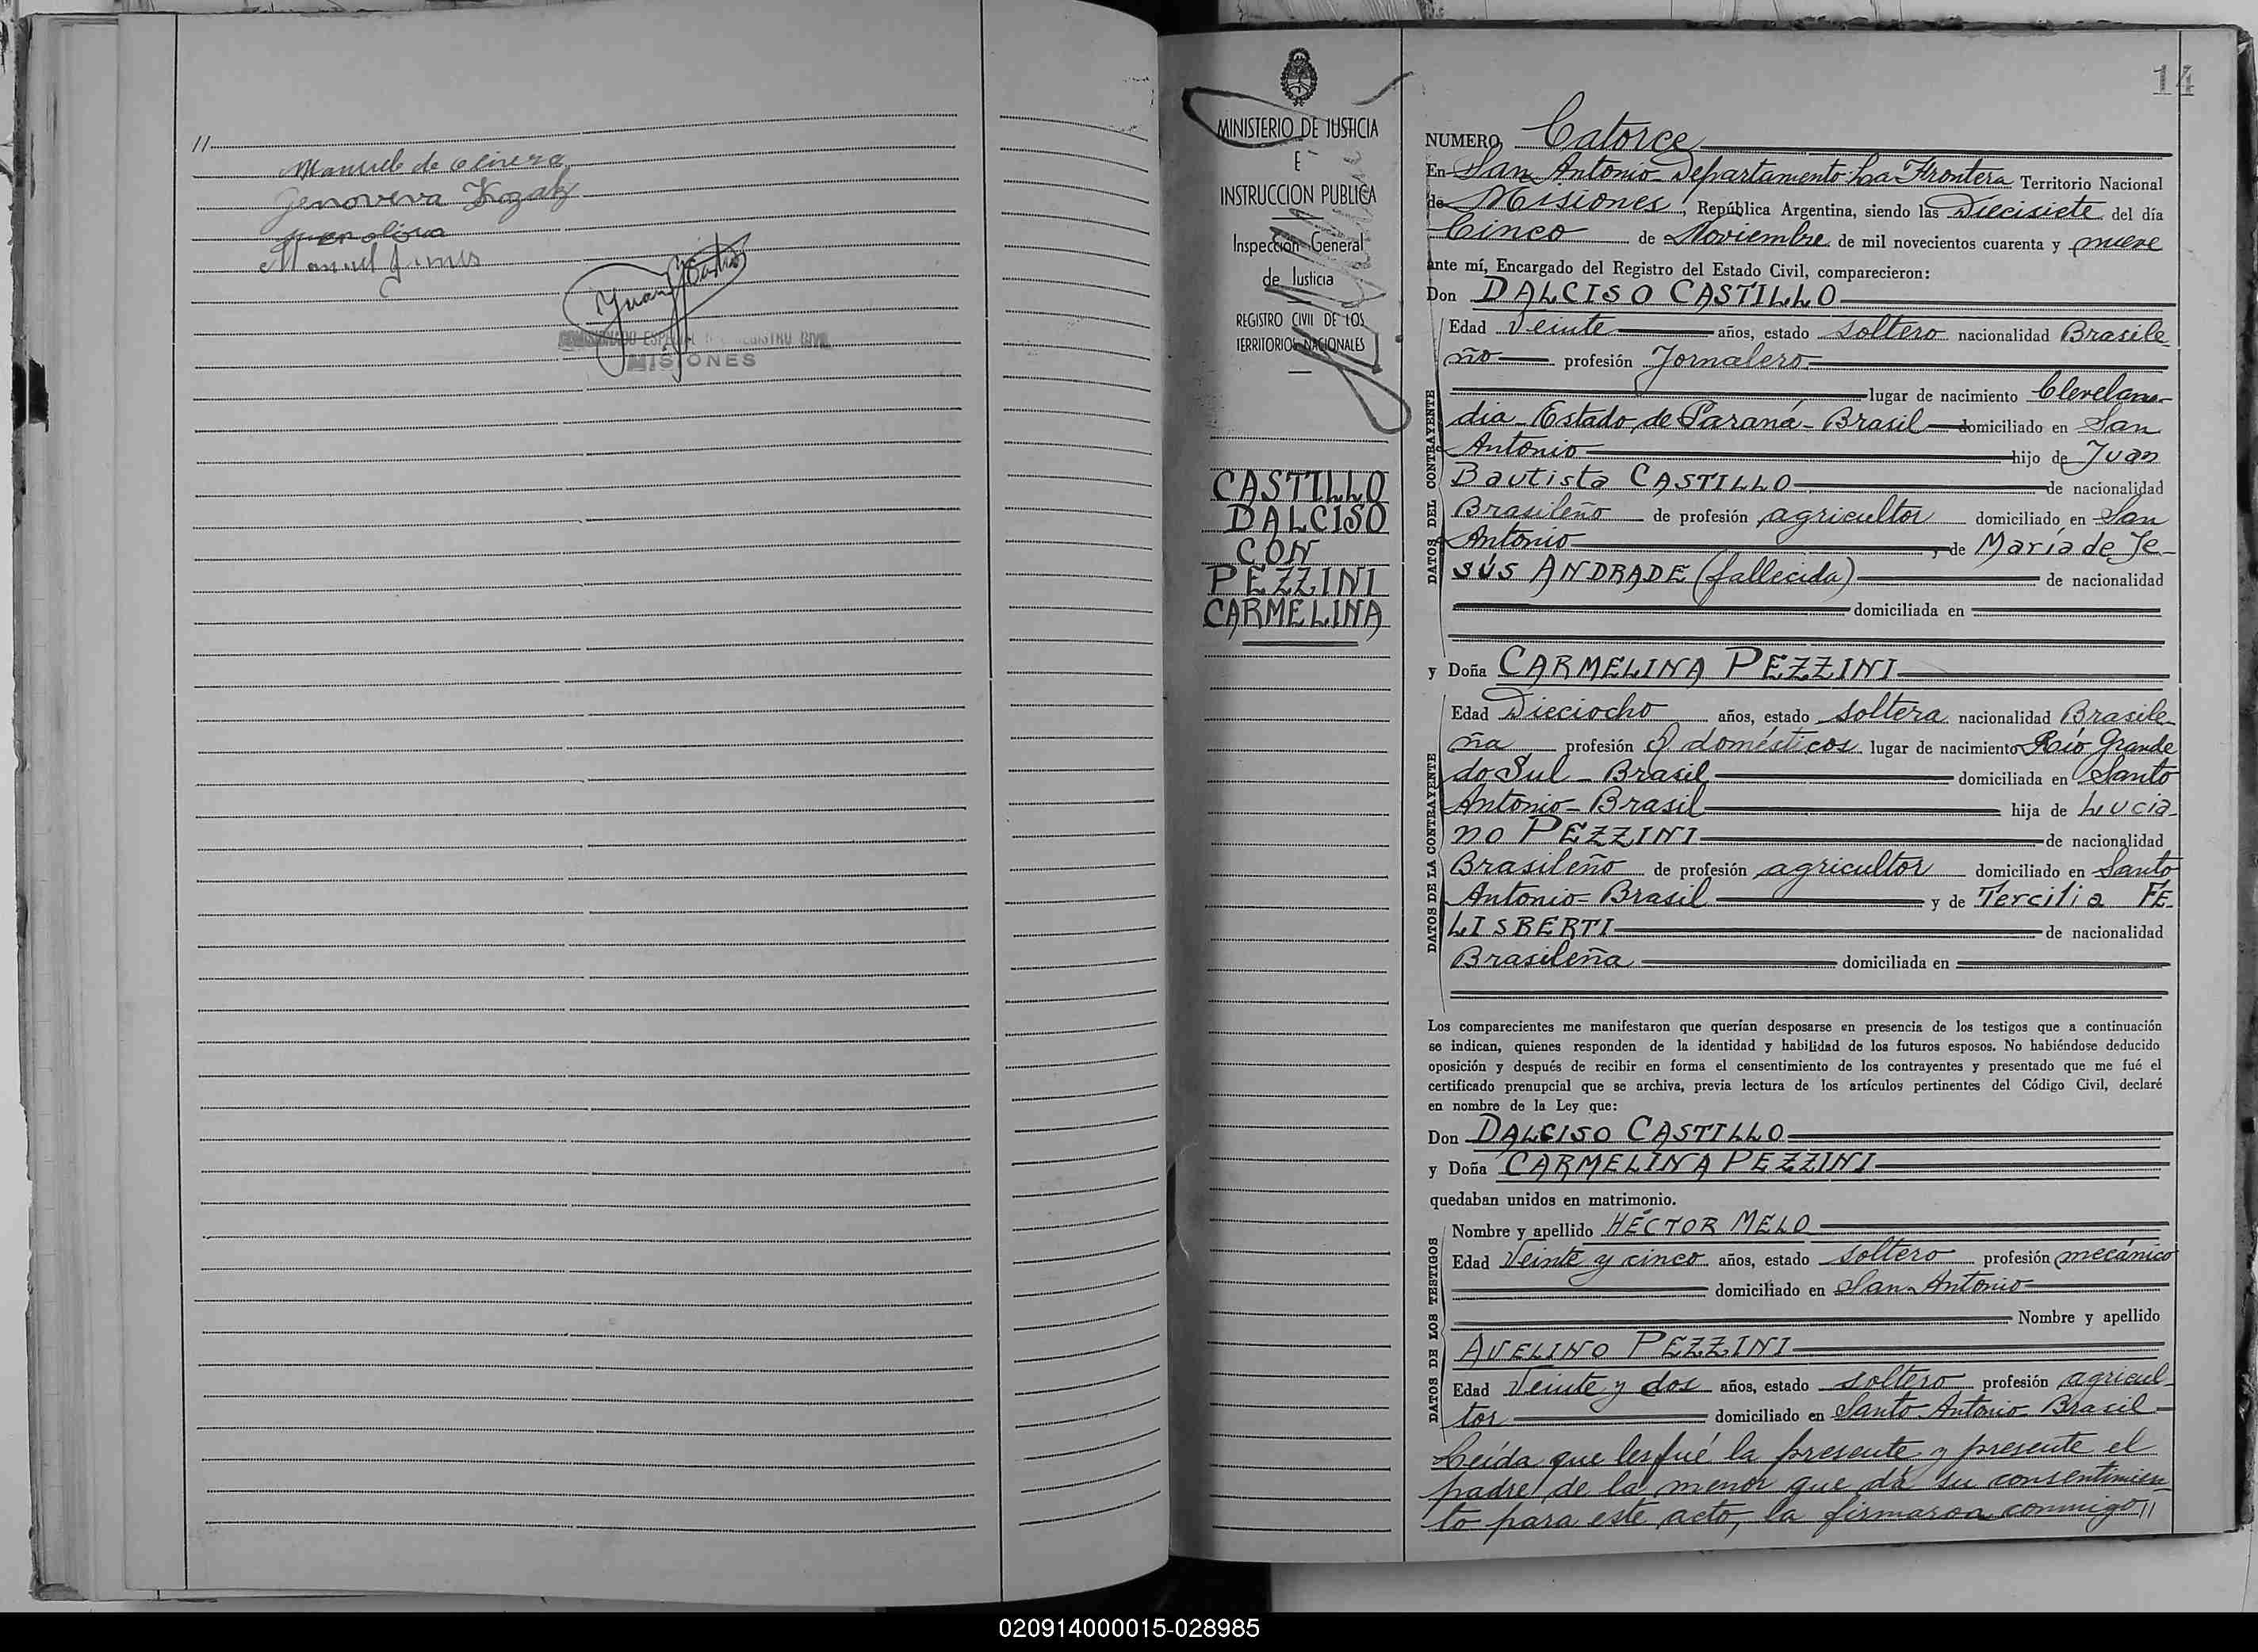 11
Manuel de Olivera
Genoveva Kozak
Manuel Gimes
MISIONES
14
MINISTERIO DE JUSTICIA
E
INSTRUCCION PUBLICA
Inspección General
de Justicia
REGISTRO CIVIL DE LOS
TERRITORIOS NACIONALES
CASTILLO
DALCISO
CON
PEZZINI
CARMELINA
NUMERO Catorce
En San Antonio Departamento La Frontera Territorio Nacional
de Misiones, República Argentina, siendo las Diecisiete del día
Cinco de Noviembre de mil novecientos cuarenta y nueve
ante mí, Encargado del Registro del Estado Civil, comparecieron:
Don DALCISO CASTILLO
DATOS DEL CONTRAYENTE
Edad Veinte años, estado soltero nacionalidad Brasile-
ño profesión Jornalero
lugar de nacimiento Clevelan-
dia Estado de Paraná - Brasil domiciliado en San
Antonio hijo de Juan
Bautista CASTILLO de nacionalidad
Brasileño de profesión agricultor domiciliado en San
Antonio, de María de Je-
sús ANDRADE (fallecida) de nacionalidad
domiciliada en
y Doña CARMELINA PEZZINI
DATOS DE LA CONTRAYENTE
Edad Dieciocho años, estado soltera nacionalidad Brasile-
ña profesión Q domésticos lugar de nacimiento Río Grande
do Sul - Brasil domiciliada en Santo
Antonio - Brasil hija de Lucia-
no PEZZINI de nacionalidad
Brasileño de profesión agricultor domiciliado en Santo
Antonio = Brasil y de Tercilia FE-
LISBERTI de nacionalidad
Brasileña domiciliada en
Los comparecientes me manifestaron que querían desposarse en presencia de los testigos que a continuación
se indican, quienes responden de la identidad y habilidad de los futuros esposos. No habiéndose deducido
oposición y después de recibir en forma el consentimiento de los contrayentes y presentado que me fué el
certificado prenupcial que se archiva, previa lectura de los artículos pertinentes del Código Civil, declaré
en nombre de la Ley que:
Don DALCISO CASTILLO
y Doña CARMELINA PEZZINI
quedaban unidos en matrimonio.
DATOS DE LOS TESTIGOS
Nombre y apellido HÉCTOR MELO
Edad Veinte y cinco años, estado soltero profesión mecánico
domiciliado en San Antonio
Nombre y apellido
AVELINO PEZZINI
Edad Veinte y dos años, estado soltero profesión agricul-
tor domiciliado en Santo Antonio - Brasil
Leída que les fué la presente y presente el
padre de la menor que dá su consentimien-
to para este acto, la firmaron conmigo 11
020914000015-028985